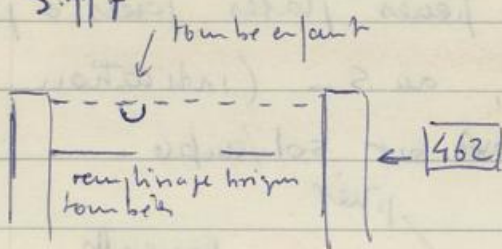 tombe enfant
462
remplissage briques
tombées